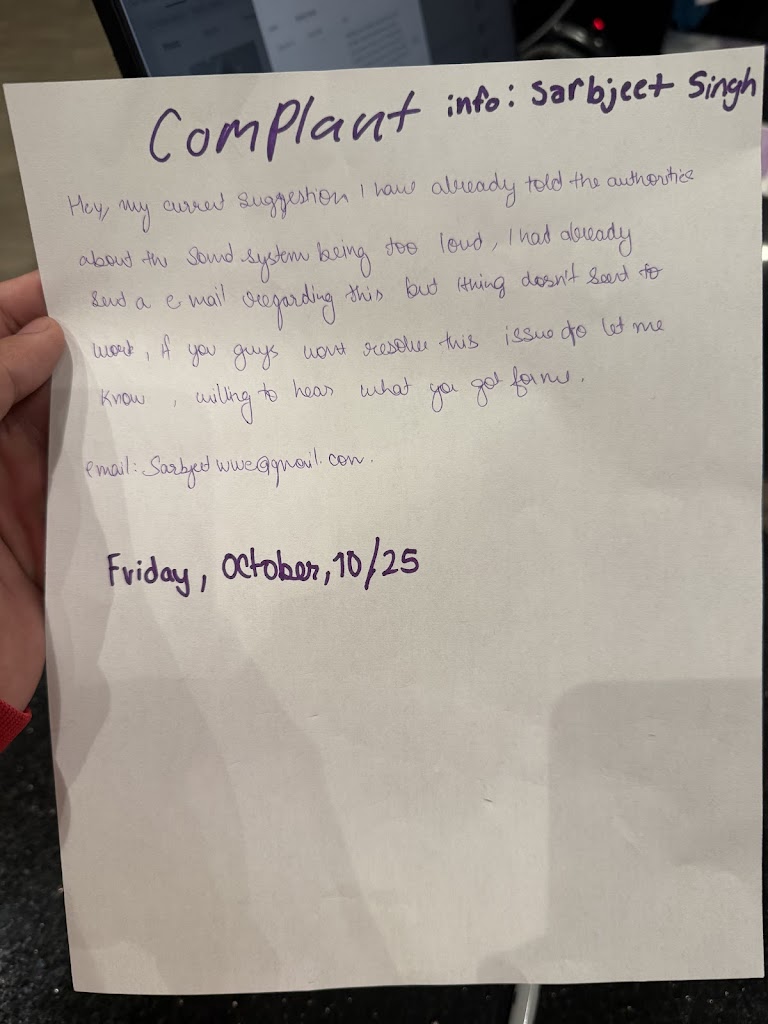 Complant info: Sarbjeet Singh
Hey, my curret suggestion I have already told the authorities
about the sound system being too loud, I had already
sent a e mail regarding this but thing doesn't seem to
work, if you guys wont resolve this issue do let me
know, willing to hear what you got for me.
email: Sarbjeetwwe@gmail.com.
Friday, October, 10/25